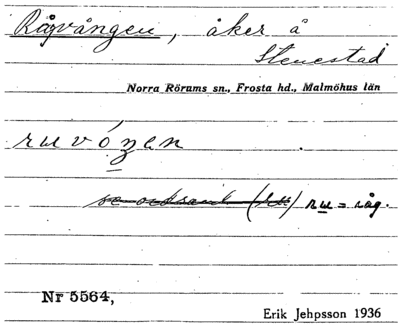 Rågvången, åker å
Stenestad
Norra Rörums sn., Frosta hd., Malmöhus län
ruvóʒen
ru = råg.
Nr 5564,
Erik Jehpsson 1936